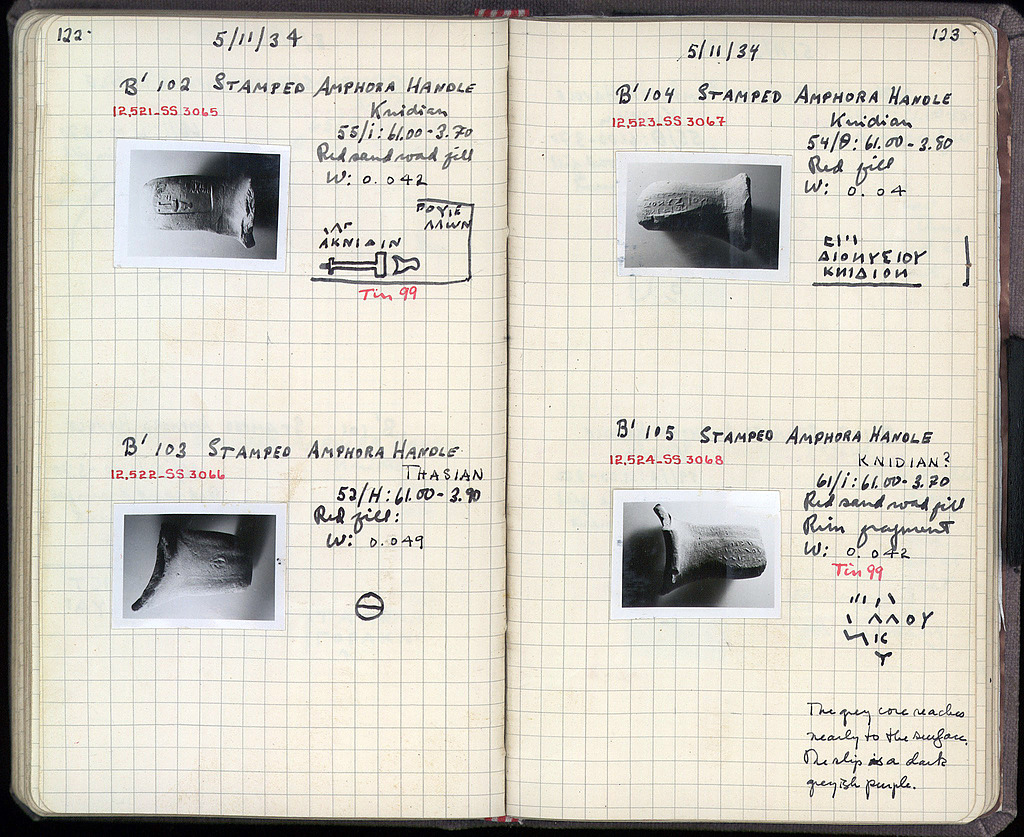 122.
5/11/34
B' 102 STAMPED AMPHORA HANDLE
12,521-SS 3065
Knidian
55/i: 61.00-3.70
Red sand road fill
W: 0.042
ΡΟΥΙΕ
ΛΛΩΝ
ΑΚΝΙΔΙΝ
Tin 99
B' 103 STAMPED AMPHORA HANDLE
12,522-SS 3066
THASIAN
Red fill:
W: 0.049
123
5/11/34
B' 104 STAMPED AMPHORA HANDLE
12,523-SS 3067
Knidian
54/Θ: 61.00-3.80
Red fill
W: 0.04
ΔΙΟΝΥΣΙΟΥ
ΚΝΙΔΙΟΝ
B' 105 STAMPED AMPHORA HANDLE
12,524-SS 3068
KNIDIAN?
61/i: 61.00-3.70
Red sand road fill
Rim fragment
W: 0.042
Tin 99
ΛΛΟΥ
The grey core reaches
nearly to the surface.
The slip is a dark
greyish purple.